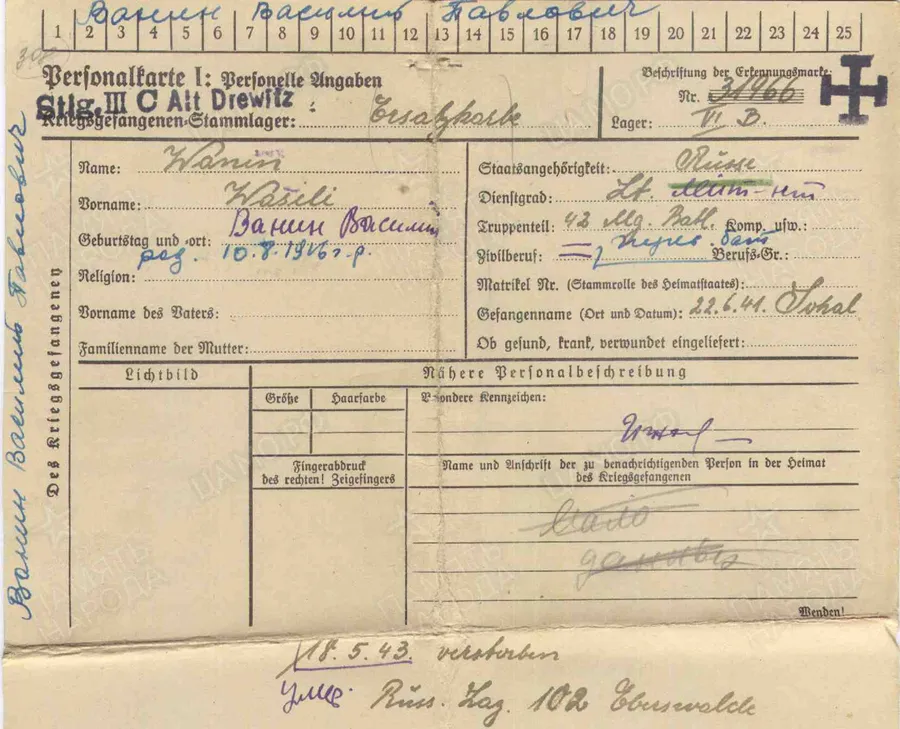 Ванин Василий Павлович
1 2 3 4 5 6 7 8 9 10 11 12 13 14 15 16 17 18 19 20 21 22 23 24 25
Personalkarte I: Personelle Angaben
Stlg. III C Alt Drewitz
Kriegsgefangenen-Stammlager: Ersatzkarte
Beschriftung der Erkennungsmarke
Nr. 31966
Lager: VI B.
Des Kriegsgefangenen
Ванин Василий Павлович
Name: Wanin
Vorname: Wašili
Ванин Василий
Geburtstag und -ort:
10.8.1916 г.р.
Religion:
Vorname des Vaters:
Familienname der Mutter:
Staatsangehörigkeit: Russe
Dienstgrad: Lt.
Truppenteil: 42 Mg. Batl. Komp. usw.:
Zivilberuf: Berufs-Gr.:
Matrikel Nr. (Stammrolle des Heimatstaates):
Gefangenname (Ort und Datum): 22.6.41. Sokal
Ob gesund, krank, verwundet eingeliefert:
Lichtbild
Nähere Personalbeschreibung
Größe
Haarfarbe
Besondere Kennzeichen:
Fingerabdruck
des rechten! Zeigefingers
Name und Anschrift der zu benachrichtigenden Person in der Heimat
des Kriegsgefangenen
мало
данных
Wenden!
18.5.43. verstorben
умер Russ. Laz. 102 Eberswalde
ПАМЯТЬ
НАРОДА
ЦАМО.РФ